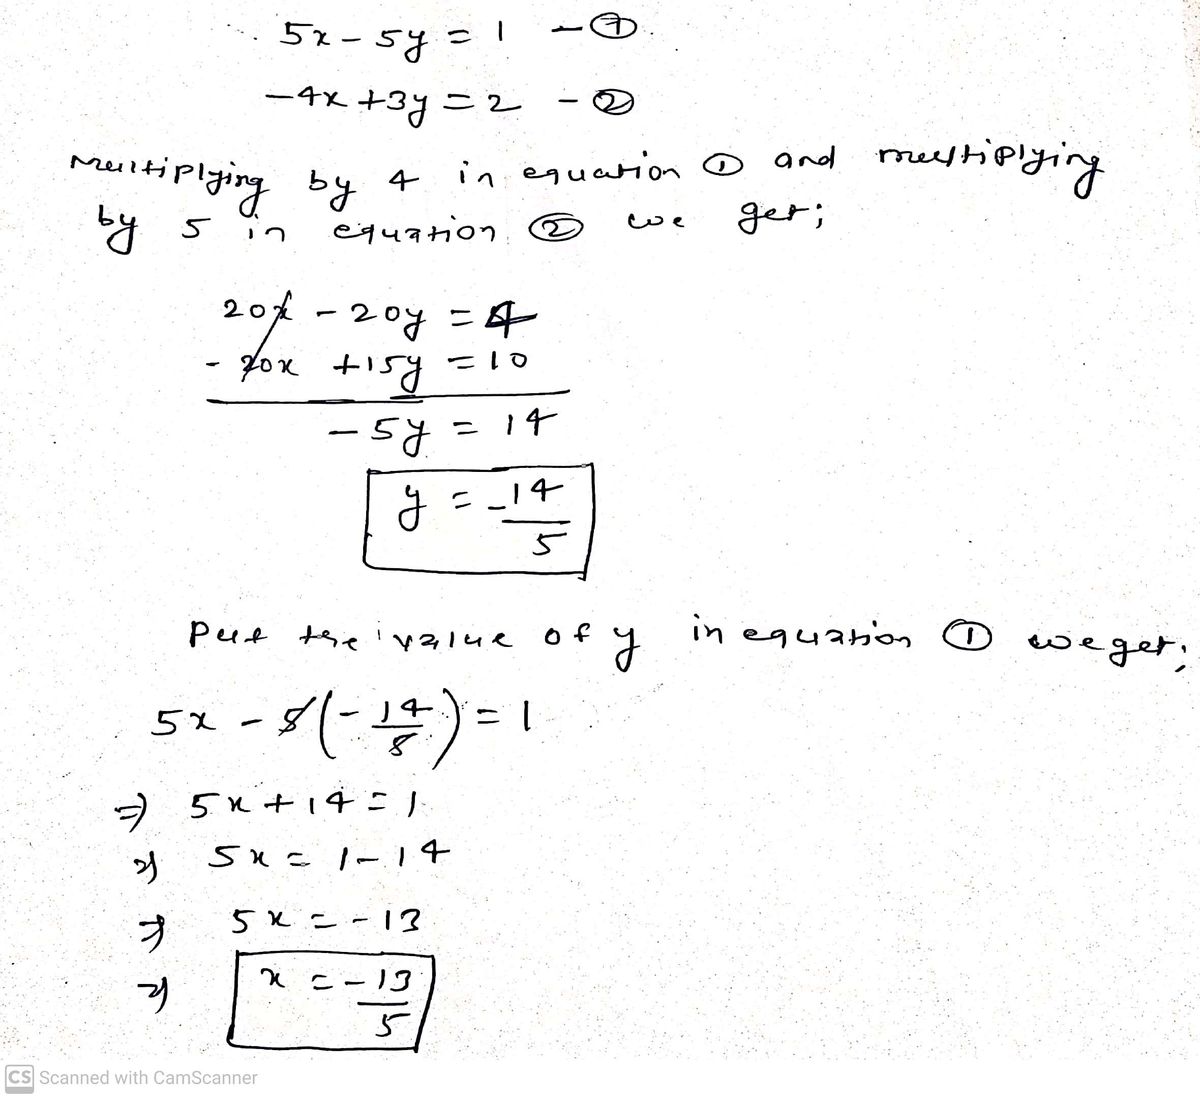 5x - 5y = 1 - ①
-4x + 3y = 2 - ②
Multiplying by 4 in equation ① and multiplying
by 5 in equation ② we get;
20x - 20y = 4
- 20x + 15y = 10
-5y = 14
y = -14/5
Put the value of y in equation ① we get;
5x - 5(-14/5) = 1
⇒ 5x + 14 = 1
⇒ 5x = 1 - 14
⇒ 5x = -13
⇒ x = -13/5
CS Scanned with CamScanner